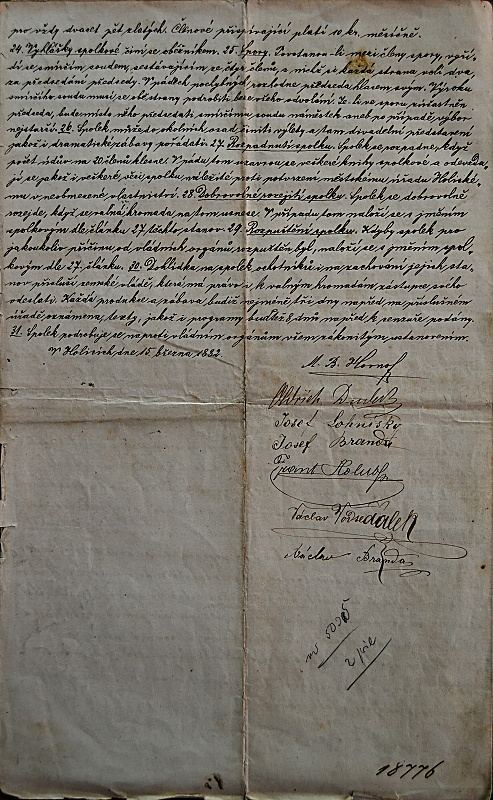 pro vždy dvacet pět zlatých. Členové přispívající platí 10 kr. měsíčně.
24. Vyhlášky spolkové činí se oběžníkem. 25. Spory. Povstanou-li mezi členy spory, vyří-
dí se smírčím soudem, sestávajícím se čtyř členů, z nichž si každá strana volí dva,
za předsedání předsedy. V pádech pochybných rozhodne předseda hlasem svým. Výroku
smírčího soudu musí se obě strany podrobiti beze všeho odvolání. Je-li ve sporu súčastněn
předseda, bude místo něho předsedati smírčímu soudu náměstek aneb po případě výbor
nejstarší. 26. Spolek může do okolních osad činiti výlety a tam divadelní představení
jakož i dramatické zábavy pořádati. 27. Rozpadnutí spolku. Spolek se rozpadne, když
počet údův na 10 členů klesne. V pádu tom uzavrou se veškeré knihy spolkové a odevzda-
jí se jakož i veškeré věci spolku náležité proti potvrzení městskému úřadu Holické-
mu v neobmezené vlastnictví. 28. Dobrovolné rozejití spolku. Spolek se dobrovolně
rozejde, když se valná hromada na tom usnese. V případu tom naloží se s jměním
spolkovým dle článku 27. těchto stanov. 29. Rozpuštění spolku. Kdyby spolek pro
jakoukoliv příčinu od vládních orgánů rozpuštěn byl, naloží se s jměním spol-
kovým dle 27. článku. 30. Dohlídka na spolek ochotníků i na zachování jejich sta-
nov přísluší zemské vládě, která má právo i k valným hromadám zástupce svého
odeslati. Každá produkce a zábava budiž nejméně tři dny napřed na příslušném
úřadě oznámena, texty, jakož i programy buďtež 8 dnů napřed k censuře podány.
31. Spolek podrobuje se naproti vládním orgánům všem zákonitým ustanovením.
V Holicích, dne 15. března 1882.
M. B. Hornof
Oldřich
Josef Lohniský
Josef Branda
Frant Holub
Václav Vodsedalek
Václav Branda
18776